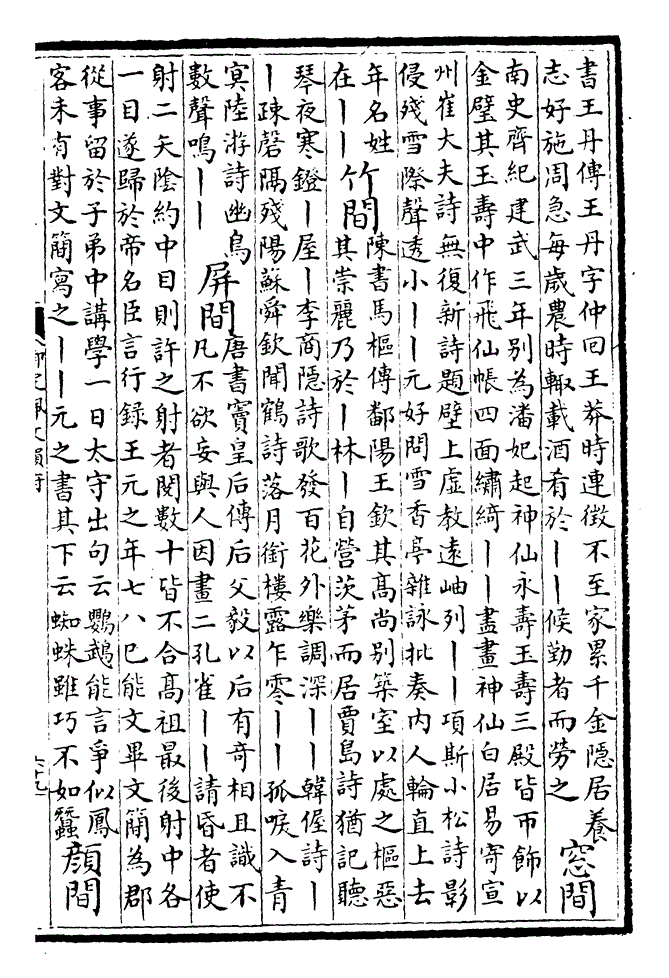 書王丹傳王丹字仲回王莽時連徵不至家累千金隱居養
志好施周急每歲農時輙載酒肴於丨丨候勤者而勞之
窓間
南史齊紀建武三年别為潘妃起神仙永壽玉壽三殿皆帀飾以
金璧其玉壽中作飛仙帳四面繡綺丨丨盡畫神仙白居易寄宣
州崔大夫詩無復新詩題壁上虛教遠岫列丨丨項斯小松詩影
侵殘雪際聲透小丨丨元好問雪香亭雜詠批奏内人輪直上去
年名姓
在丨丨
竹間
陳書馬樞傳鄱陽王欽其髙尚别築室以處之樞惡
其崇麗乃於丨林丨自營茨茅而居賈島詩猶記聽
琴夜寒鐙丨屋丨李商隱詩歌發百花外樂調深丨丨韓偓詩丨
丨疎磬隔殘陽蘇舜欽聞鶴詩落月銜樓露乍零丨丨孤唳入青
冥陸游詩幽鳥
數聲鳴丨丨
屏間
唐書竇皇后傳后父毅以后有奇相且識不
凡不欲妄與人因畫二孔雀丨丨請昏者使
射二矢陰約中目則許之射者閱數十皆不合髙祖最後射中各
一目遂歸於帝名臣言行録王元之年七八巳能文畢文簡為郡
從事留於子弟中講學一日太守出句云鸚鵡能言爭似鳳
客未有對文簡寫之丨丨元之書其下云蜘蛛雖巧不如蠶
顔間